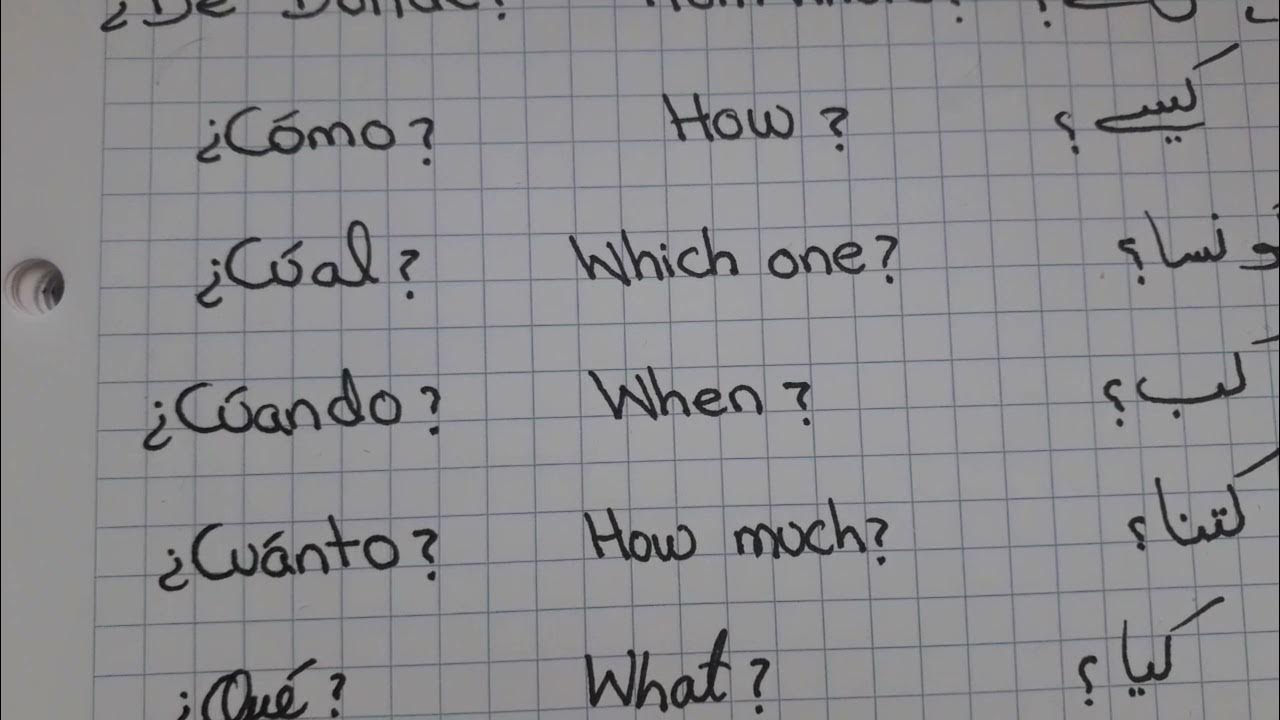 ¿De Donde?
¿Cómo? How? کیسے؟
¿Cúal? Which one? کونسا؟
¿Cúando? When? کب؟
¿Cuánto? How much? کتنا؟
¿Qué? What? کیا؟